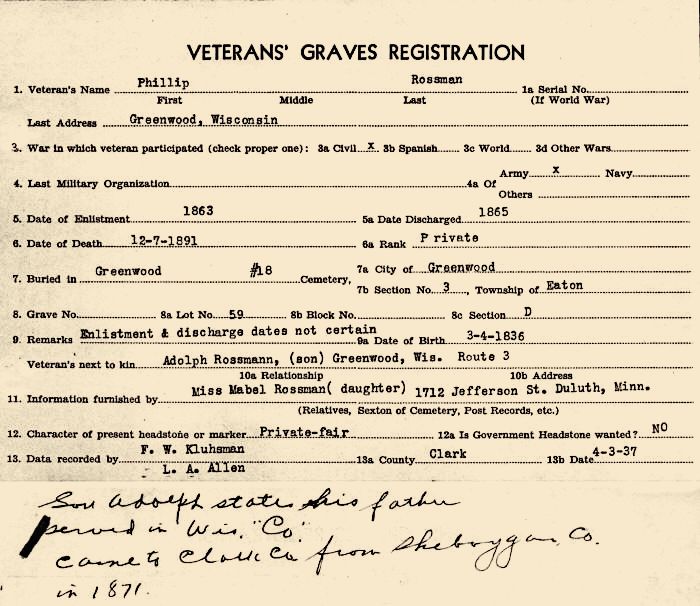 VETERANS' GRAVES REGISTRATION
1. Veteran's Name Phillip Rossman 1a Serial No.
First Middle Last (If World War)
Last Address Greenwood, Wisconsin
3. War in which veteran participated (check proper one): 3a Civil x 3b Spanish 3c World 3d Other Wars
4. Last Military Organization 4a Of Army x Navy
Others
5. Date of Enlistment 1863 5a Date Discharged 1865
6. Date of Death 12-7-1891 6a Rank Private
7. Buried in Greenwood #18 Cemetery, 7a City of Greenwood
7b Section No. 3, Township of Eaton
8. Grave No. 8a Lot No. 59 8b Block No. 8c Section D
9. Remarks Enlistment & discharge dates not certain 9a Date of Birth 3-4-1836
Veteran's next to kin Adolph Rossmann, (son) Greenwood, Wis. Route 3
10a Relationship 10b Address
11. Information furnished by Miss Mabel Rossman( daughter) 1712 Jefferson St. Duluth, Minn.
(Relatives, Sexton of Cemetery, Post Records, etc.)
12. Character of present headstone or marker Private-fair 12a Is Government Headstone wanted? NO
13. Data recorded by F. W. Kluhsman 13a County Clark 13b Date 4-3-37
L. A. Allen
Son Adolph states his father
served in Wis. "Co."
came to Clark Co from Sheboygan Co.
in 1871.